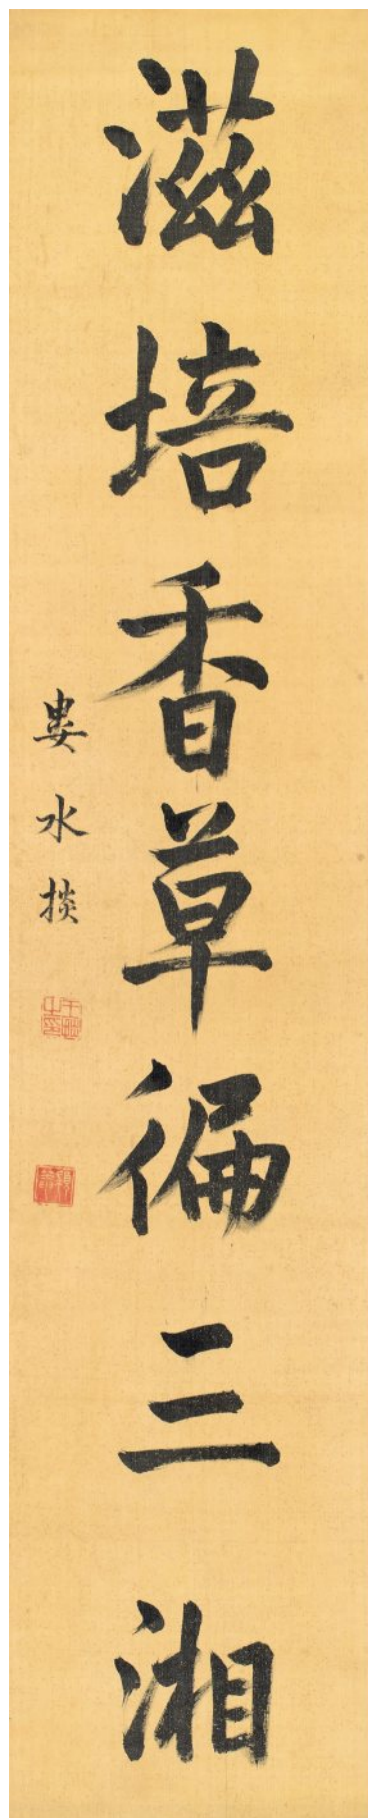 滋培香草徧三湘
婁水掞